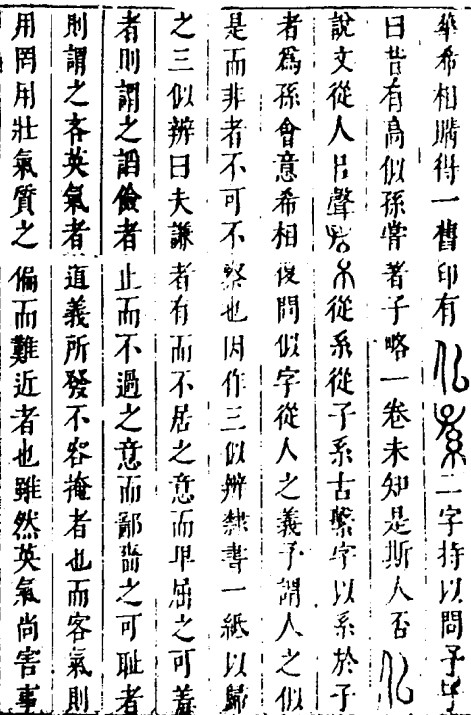 華希相購得一舊印有佀孫二字持以問予
曰昔有高似孫嘗著子略一卷未知是斯人否佀
說文從人㠯聲孫從系從子系古繫字以系於子
者爲孫會意希相復問似字從人之義予謂人之似
是而非者不可不察也因作三似辨隸書一紙以歸
之三似辨曰夫謙者有而不居之意而卑屈之可羞
者則謂之謟儉者止而不過之意而鄙嗇之可耻者
則謂之吝英氣者道義所發不容掩者也而客氣則
用罔用壯氣質之偏而難近者也雖然英氣尚害事